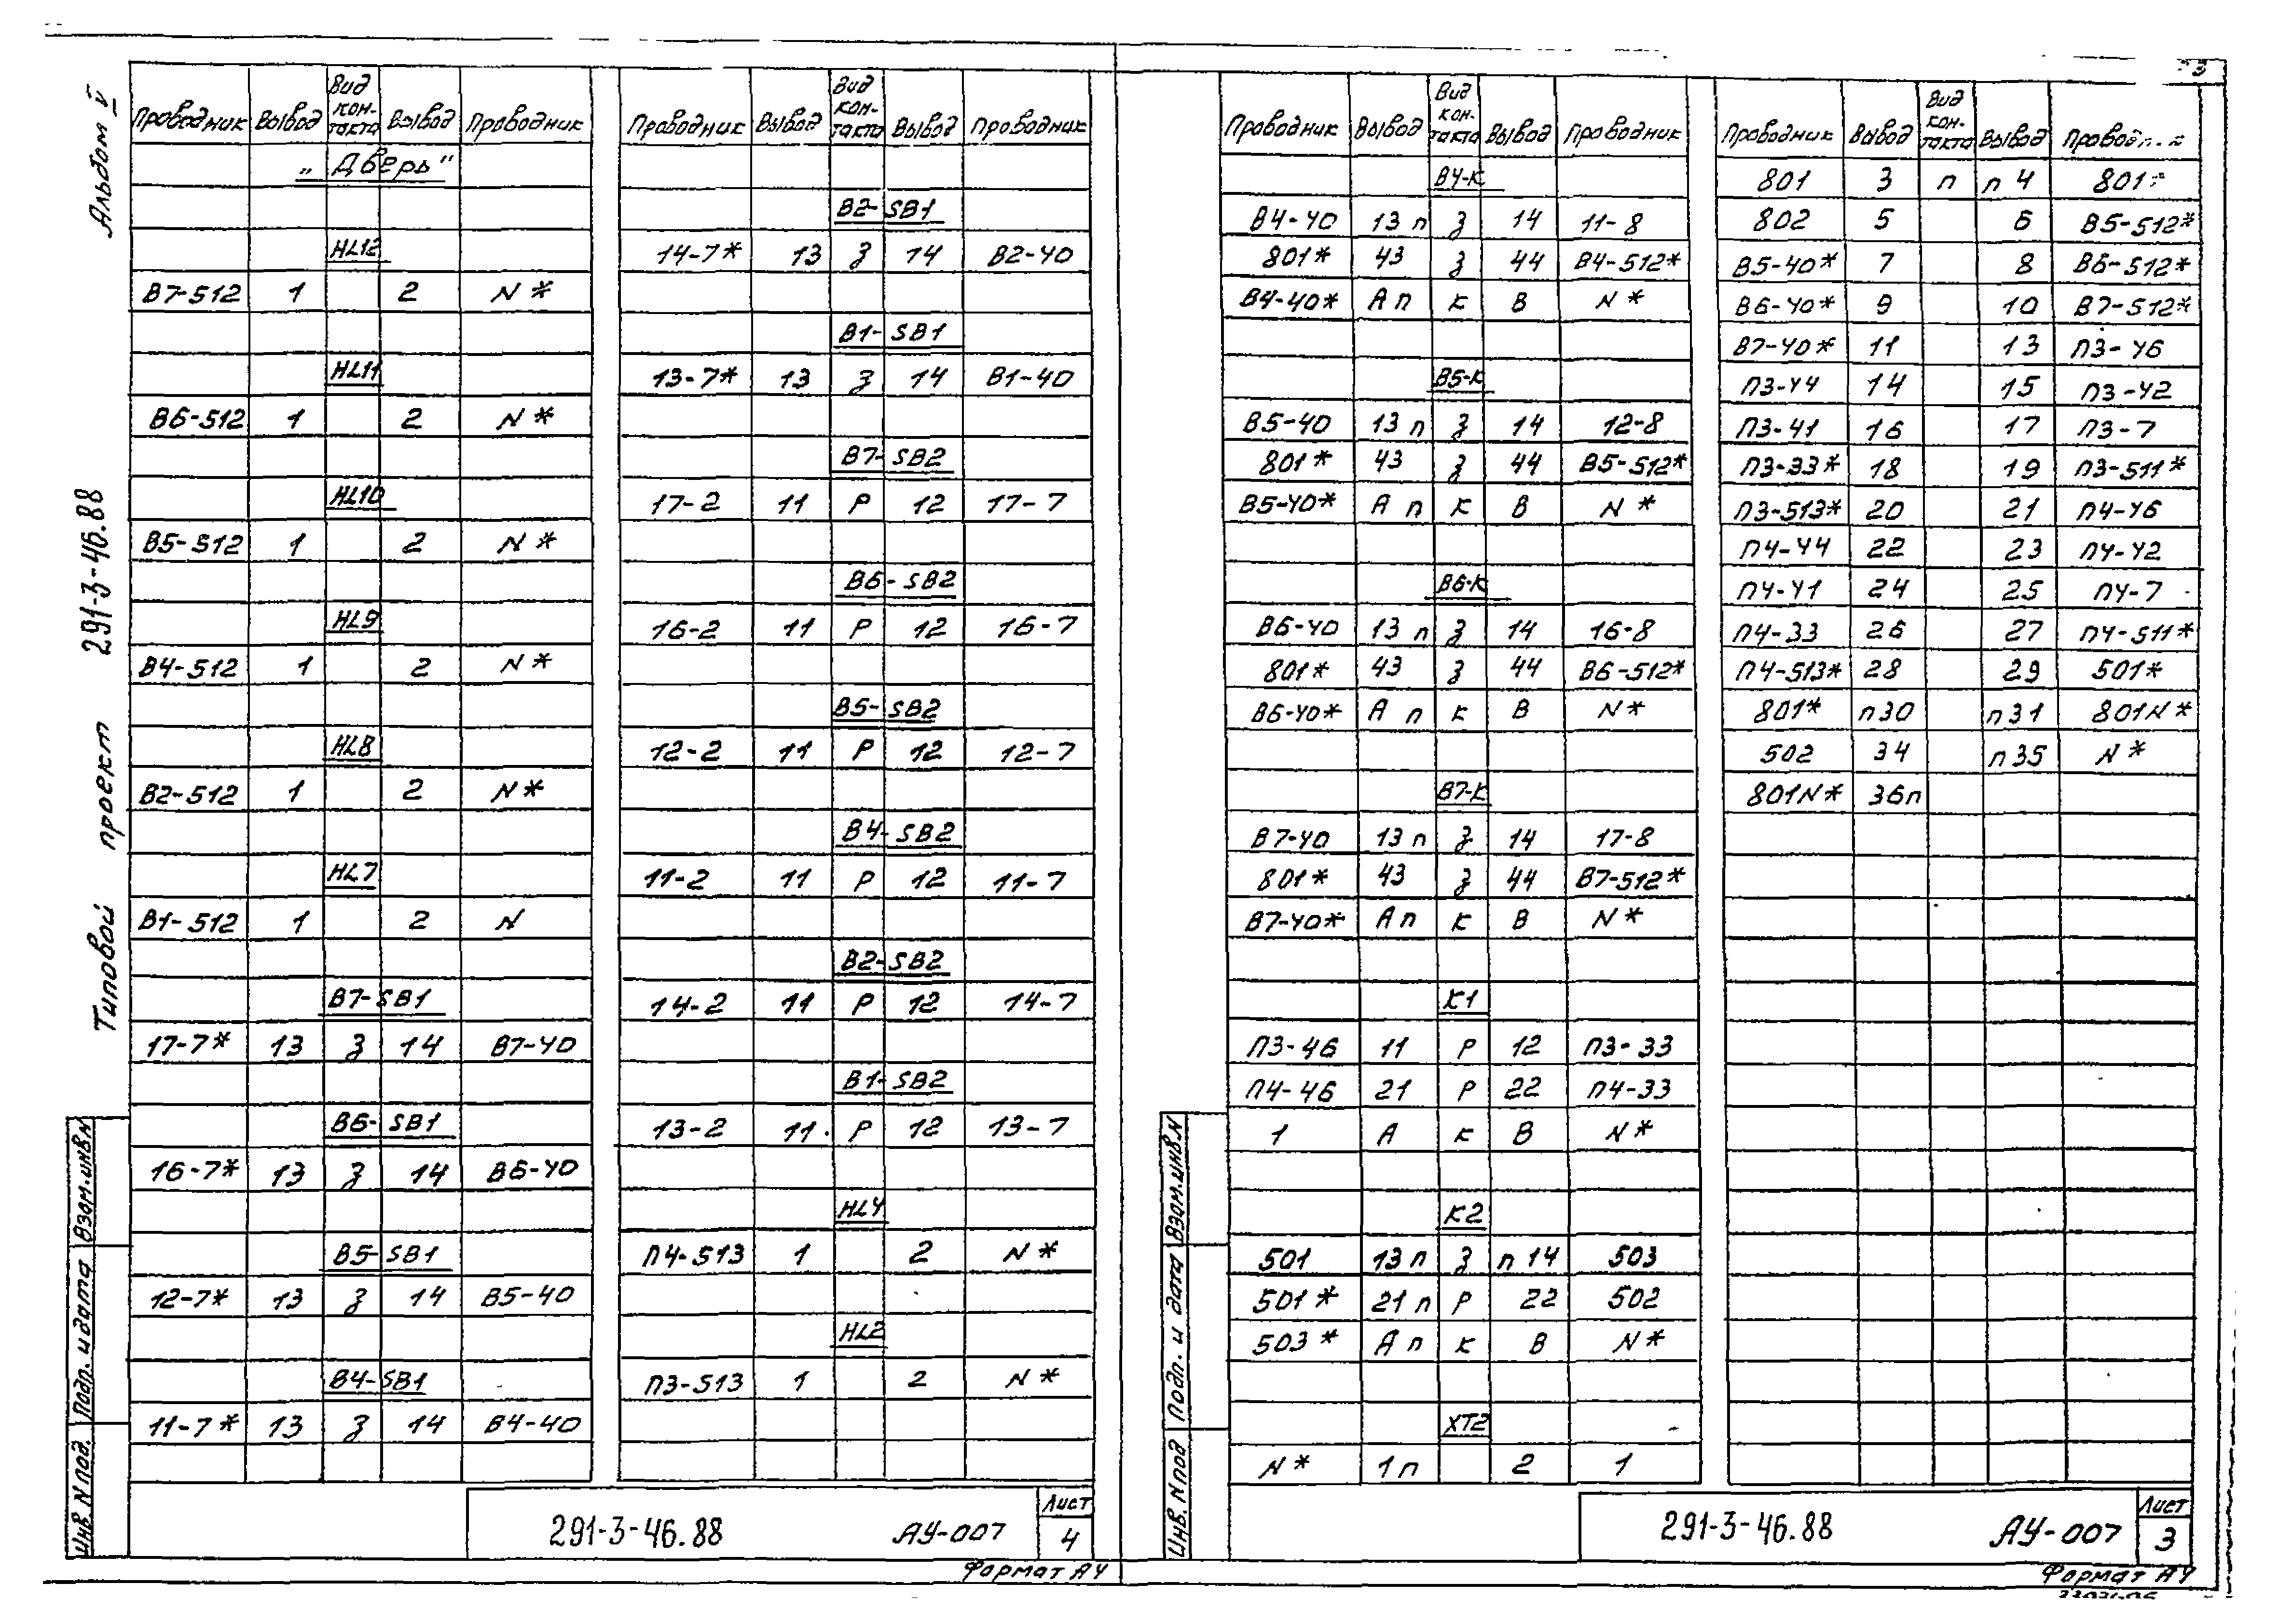 Альбом V
291-3-46.88
Типовой проект
Проводник Вывод Вид кон-такта Вывод Проводник
„Дверь"
HL12
В7-512 1 2 N*
HL11
В6-512 1 2 N*
HL10
В5-512 1 2 N*
HL9
В4-512 1 2 N*
HL8
В2-512 1 2 N*
HL7
В1-512 1 2 N
В7-SB1
17-7* 13 З 14 В7-40
В6-SB1
16-7* 13 З 14 В6-40
В5-SB1
12-7* 13 З 14 В5-40
В4-SB1
11-7* 13 З 14 В4-40
Проводник Вывод Вид кон-такта Вывод Проводник
В2-SB1
14-7* 13 З 14 В2-40
В1-SB1
13-7* 13 З 14 В1-40
В7-SB2
17-2 11 Р 12 17-7
В6-SB2
16-2 11 Р 12 16-7
В5-SB2
12-2 11 Р 12 12-7
В4-SB2
11-2 11 Р 12 11-7
В2-SB2
14-2 11 Р 12 14-7
В1-SB2
13-2 11 Р 12 13-7
HL4
П4-513 1 2 N*
HL2
П3-513 1 2 N*
Взам.инв.N
Подп. и дата
Инв. N под.
291-3-46.88 АУ-007 Лист 4
Формат А4
Проводник Вывод Вид кон-такта Вывод Проводник
В4-К
В4-40 13 п З 14 11-8
801* 43 З 44 В4-512*
В4-40* А п К В N*
В5-К
В5-40 13 п З 14 12-8
801* 43 З 44 В5-512*
В5-40* А п К В N*
В6-К
В6-40 13 п З 14 16-8
801* 43 З 44 В6-512*
В6-40* А п К В N*
В7-К
В7-40 13 п З 14 17-8
801* 43 З 44 В7-512*
В7-40* А п К В N*
К1
П3-46 11 Р 12 П3-33
П4-46 21 Р 22 П4-33
1 А К В N*
К2
501 13 п З п 14 503
501* 21 п Р 22 502
503* А п К В N*
ХТ2
N* 1 п 2 1
Проводник Вывод Вид кон-такта Вывод
801 3 п п 4 801*
802 5 6 В5-512*
В5-40* 7 8 В6-512*
В6-40* 9 10 В7-512*
В7-40* 11 13 П3-46
П3-44 14 15 П3-42
П3-41 16 17 П3-7
П3-33* 18 19 П3-511*
П3-513* 20 21 П4-46
П4-44 22 23 П4-42
П4-41 24 25 П4-7
П4-33 26 27 П4-511*
П4-513* 28 29 501*
801* п30 п31 801N*
502 34 п35 N*
801N* 36п
Взам.инв.N
Подп. и дата
Инв. N под
291-3-46.88 АУ-007 Лист 3
Формат А4